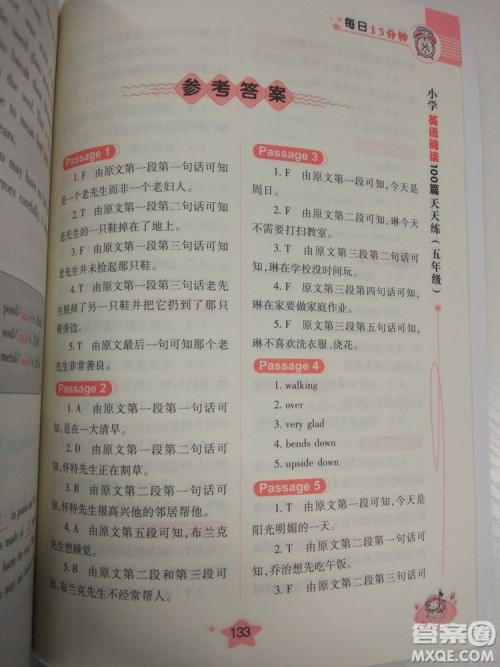 每日15分钟
参考答案
小学英语阅读100篇天天练(五年级)
Passage 1
1. F 由原文第一段第一句话可知
是一个老先生而非一个老妇人。
2. T 由原文第一段第二句话可知
老先生的一只鞋掉在了地上。
3. F 由原文第一段第三句话可知
老先生并未捡起那只鞋。
4. T 由原文第三段第三句话可知老
先生脱掉了另一只鞋并把它扔到了那只
鞋旁边。
5. T 由原文最后一句可知那个老
先生非常善良。
Passage 2
1. A 由原文第一段第一句话可
知,是在一大清早。
2. D 由原文第一段第二句话可
知,怀特先生正在割草。
3. B 由原文第二段第二句话可
知,怀特先生很高兴他的邻居帮他。
4. A 由原文第五段可知,布兰克
先生想睡觉。
5. B 由原文第二段和第三段可
知,布兰克先生不经常帮人。
Passage 3
1. F 由原文第一段可知,今天是
周日。
2. F 由原文第二段可知,琳今天
不需要打扫教室。
3. T 由原文第三段第二句话可
知,琳在学校没时间玩。
4. F 由原文第三段第四句话可知,
琳在家要做家庭作业。
5. F 由原文第三段第五句话可知,
琳不喜欢洗衣服、浇花。
Passage 4
1. walking
2. over
3. very glad
4. bends down
5. upside down
Passage 5
1. T 由原文第一段可知,今天是
阳光明媚的一天。
2. T 由原文第二段第一句话可
知,乔治想先吃午饭。
3. F 由原文第二段第三句话可
133
答案圈
MXQE.COM